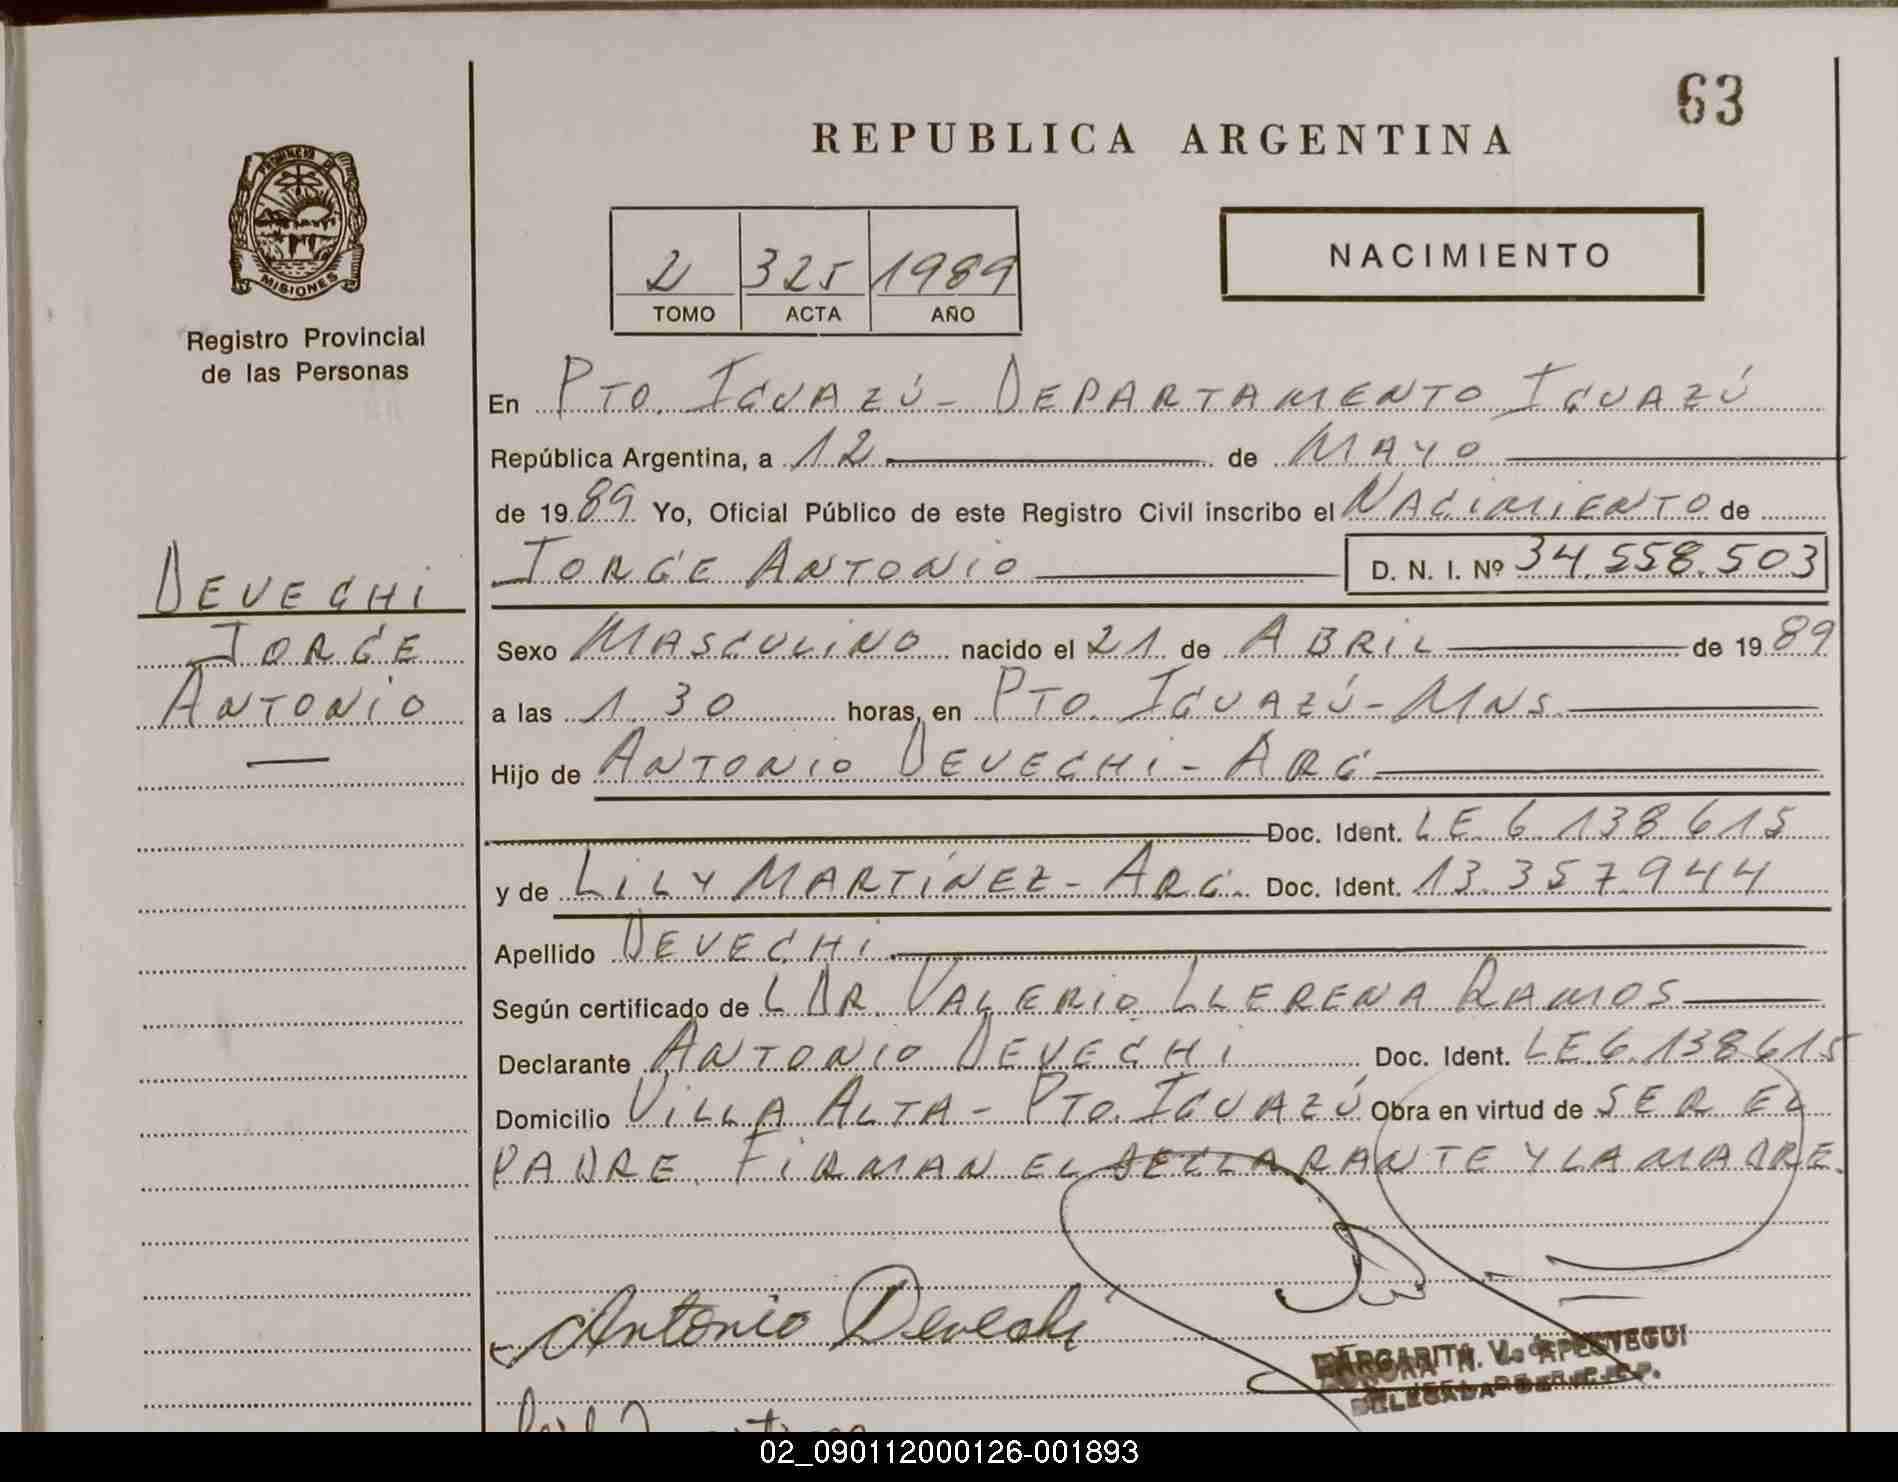 63
REPUBLICA ARGENTINA
PROVINCIA DE
MISIONES
Registro Provincial
de las Personas
2 325 1989
TOMO ACTA AÑO
NACIMIENTO
En PTO. IGUAZÚ - DEPARTAMENTO IGUAZÚ
República Argentina, a 12 de MAYO
de 1989 Yo, Oficial Público de este Registro Civil inscribo el NACIMIENTO de
JORGE ANTONIO D. N. I. Nº 34.558.503
DEVECHI
JORGE
ANTONIO
Sexo MASCULINO nacido el 21 de ABRIL de 1989
a las 1.30 horas, en PTO. IGUAZÚ - MNS
Hijo de ANTONIO DEVECHI - ARG.
Doc. Ident. LE 6.138.615
y de LILY MARTÍNEZ - ARG. Doc. Ident. 13.357.944
Apellido DEVECHI
Según certificado de L DR. VALERIO LLERENA RAMOS
Declarante ANTONIO DEVECHI Doc. Ident. LE 6.138.615
Domicilio VILLA ALTA - PTO. IGUAZÚ Obra en virtud de SER EL
PADRE. FIRMAN EL DECLARANTE Y LA MADRE.
Antonio Devechi
02_090112000126-001893